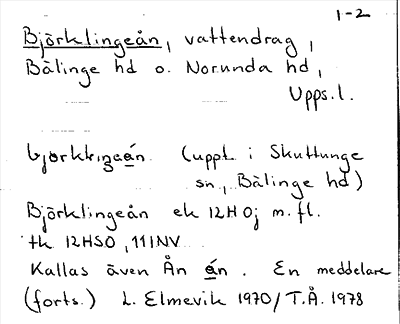 1-2
Björklingeån, vattendrag,
Bälinge hd o. Norunda hd,
Upps.l.
(uppt. i Skuttunge
sn, Bälinge hd)
Björklingeån ek 12H0j m.fl.
tk 12HSO, 11INV
Kallas även Ån án. En meddelare
(forts.) L. Elmevik 1970/T.Å. 1978